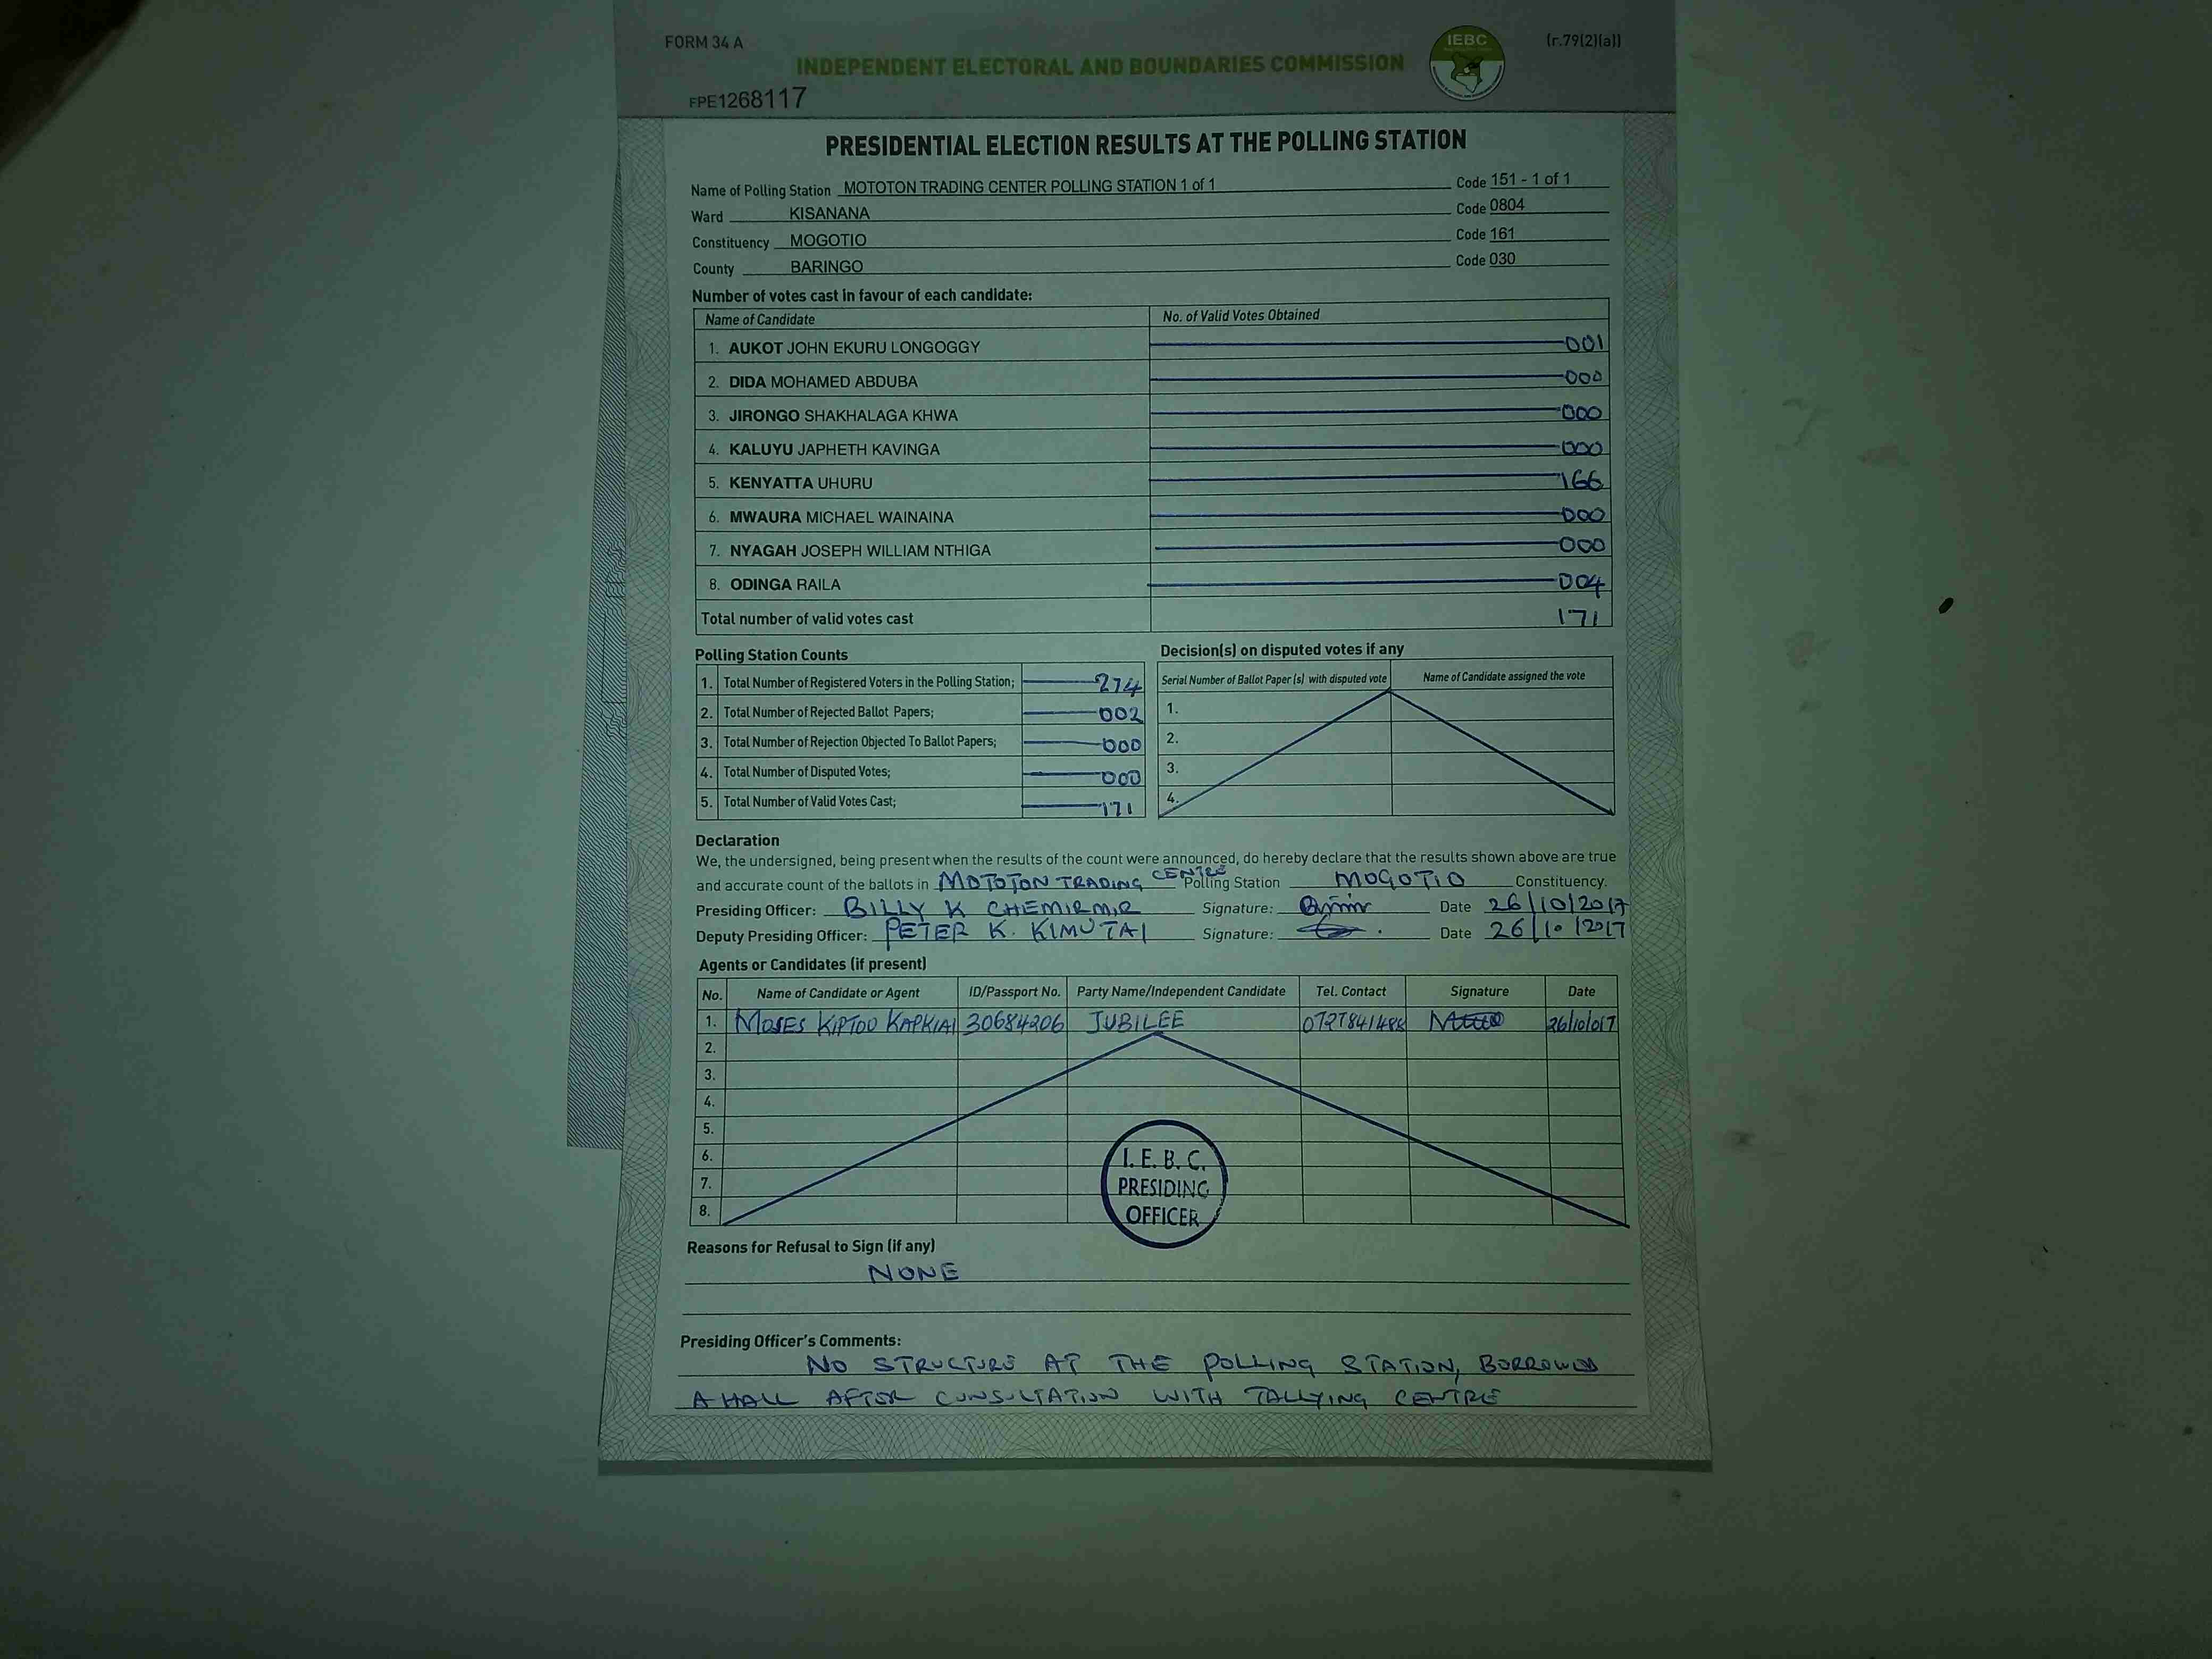 FORM 34 A
IEBC
(r.79(2)(a))
INDEPENDENT ELECTORAL AND BOUNDARIES COMMISSION
FPE1268117
PRESIDENTIAL ELECTION RESULTS AT THE POLLING STATION
Name of Polling Station MOTOTON TRADING CENTER POLLING STATION 1 of 1 Code 151 - 1 of 1
Ward KISANANA Code 0804
Constituency MOGOTIO Code 161
County BARINGO Code 030
Number of votes cast in favour of each candidate:
Name of Candidate No. of Valid Votes Obtained
1. AUKOT JOHN EKURU LONGOGGY 001
2. DIDA MOHAMED ABDUBA 000
3. JIRONGO SHAKHALAGA KHWA 000
4. KALUYU JAPHETH KAVINGA 000
5. KENYATTA UHURU 166
6. MWAURA MICHAEL WAINAINA 000
7. NYAGAH JOSEPH WILLIAM NTHIGA 000
8. ODINGA RAILA 004
Total number of valid votes cast 171
Polling Station Counts
1. Total Number of Registered Voters in the Polling Station; 274
2. Total Number of Rejected Ballot Papers; 002
3. Total Number of Rejection Objected To Ballot Papers; 000
4. Total Number of Disputed Votes; 000
5. Total Number of Valid Votes Cast; 171
Decision(s) on disputed votes if any
Serial Number of Ballot Paper (s) with disputed vote Name of Candidate assigned the vote
1.
2.
3.
4.
Declaration
We, the undersigned, being present when the results of the count were announced, do hereby declare that the results shown above are true
and accurate count of the ballots in MOTOTON TRADING CENTRE Polling Station MOGOTIO Constituency.
Presiding Officer: BILLY K CHEMIRMIR Signature: Date 26/10/2017
Deputy Presiding Officer: PETER K. KIMUTAI Signature: Date 26/10/2017
Agents or Candidates (if present)
No. Name of Candidate or Agent ID/Passport No. Party Name/Independent Candidate Tel. Contact Signature Date
1. MOSES KIPTOO KAPKIAI 30684206 JUBILEE 26/10/017
2.
3.
4.
5.
6.
7.
8.
I. E. B. C.
PRESIDING
OFFICER
Reasons for Refusal to Sign (if any)
NONE
Presiding Officer's Comments:
NO STRUCTURE AT THE POLLING STATION, BORROWED
A HALL AFTER CONSULTATION WITH TALLYING CENTRE